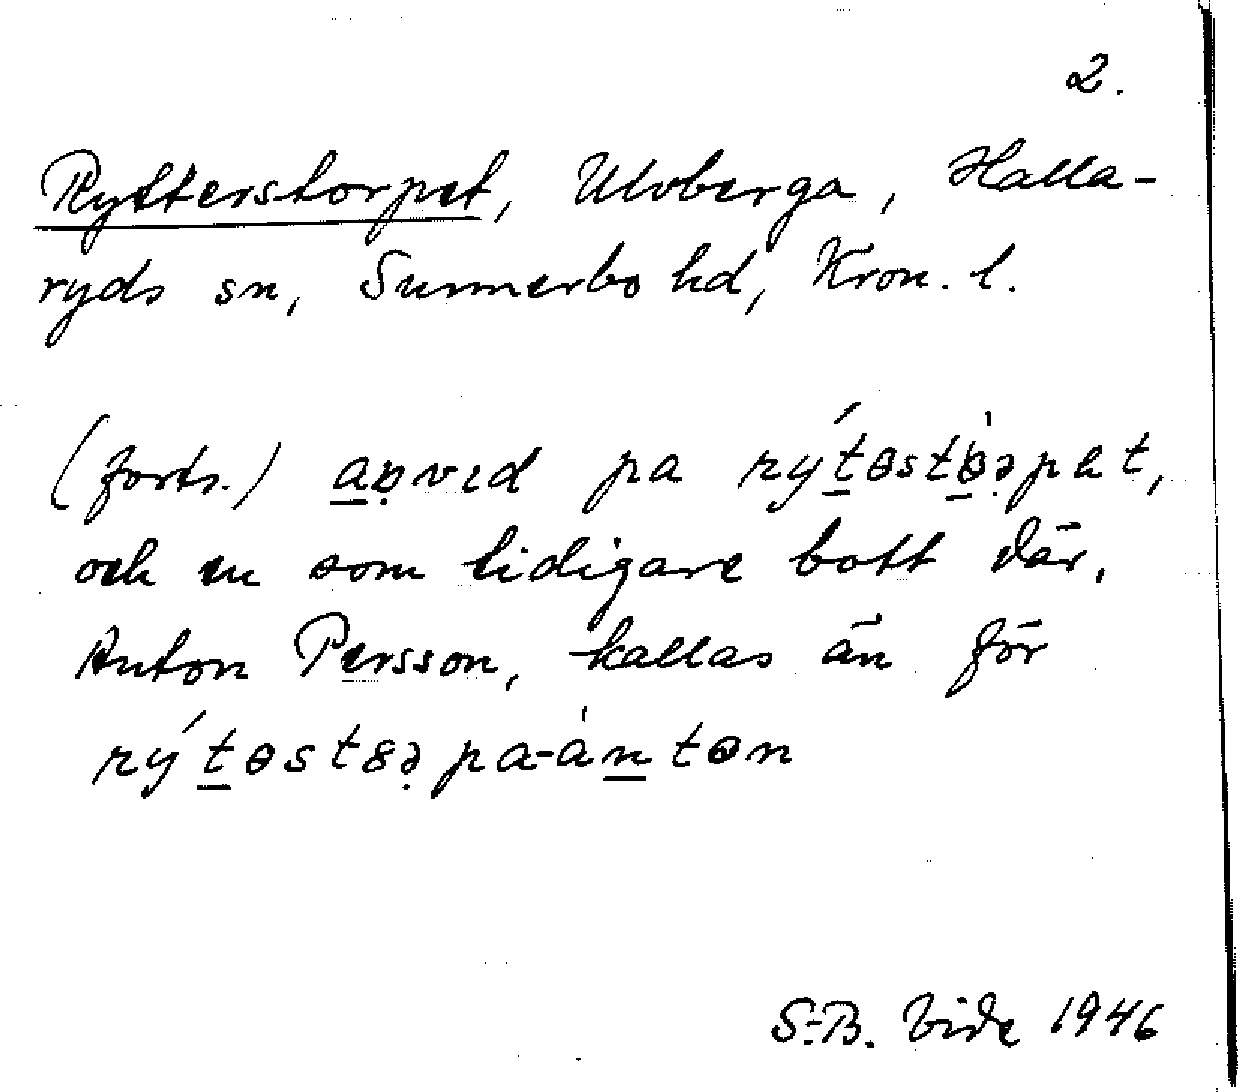 2.
Rytterstorpet, Ulvberga, Halla-
ryds sn, Sunnerbo hd, Kron. l.
(forts.) aṛvɪd pa rýtɵstɵ̀ꝛpet,
och en som tidigare bott där,
Anton Persson, kallas än för
rýtɵst8ꝛpa-àntɵn
S-B. Vide 1946